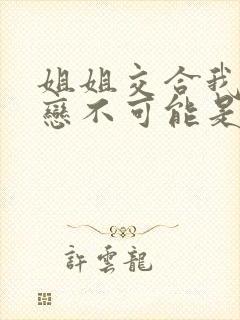 姐姐交合我
戀不可能是
許雲龍